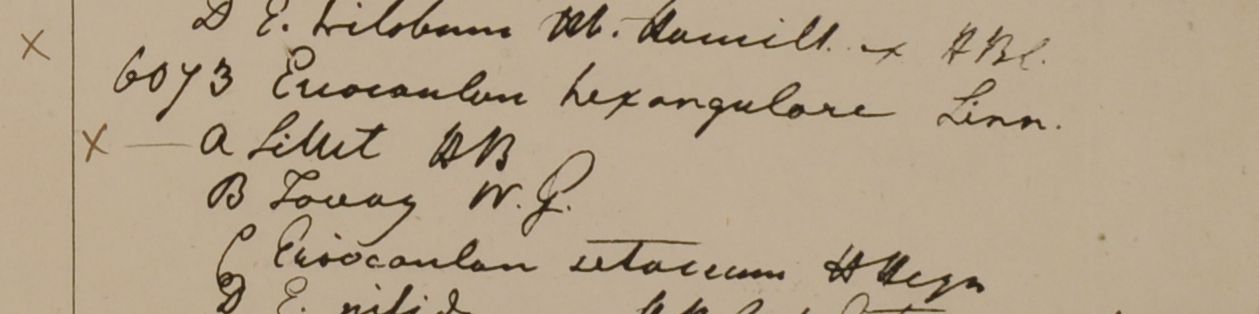 D E. trilobum Hb. Hamilt. x HBC.
6073 Eriocaulon hexangulare Linn.
x — A Sillet HB
B Tavoy W.G.
C Eriocaulon setaceum H Heyn
D E.